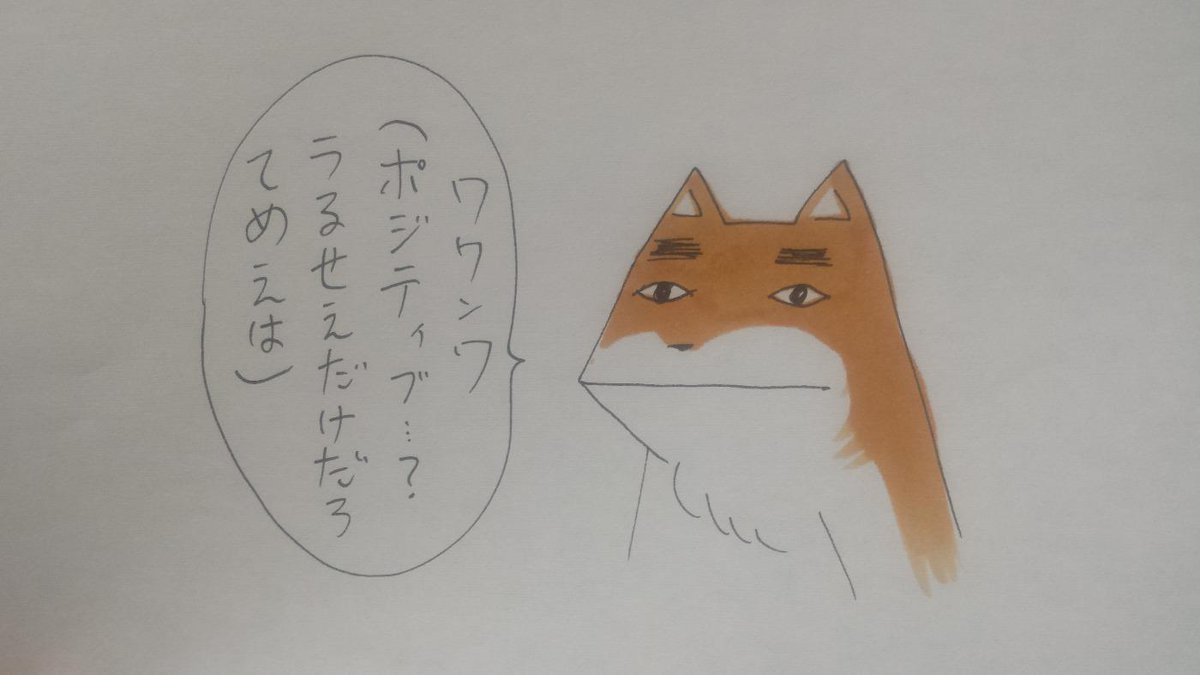 ワワンワ
(ポジティブ…?
うるせえだけだろ
てめえは)